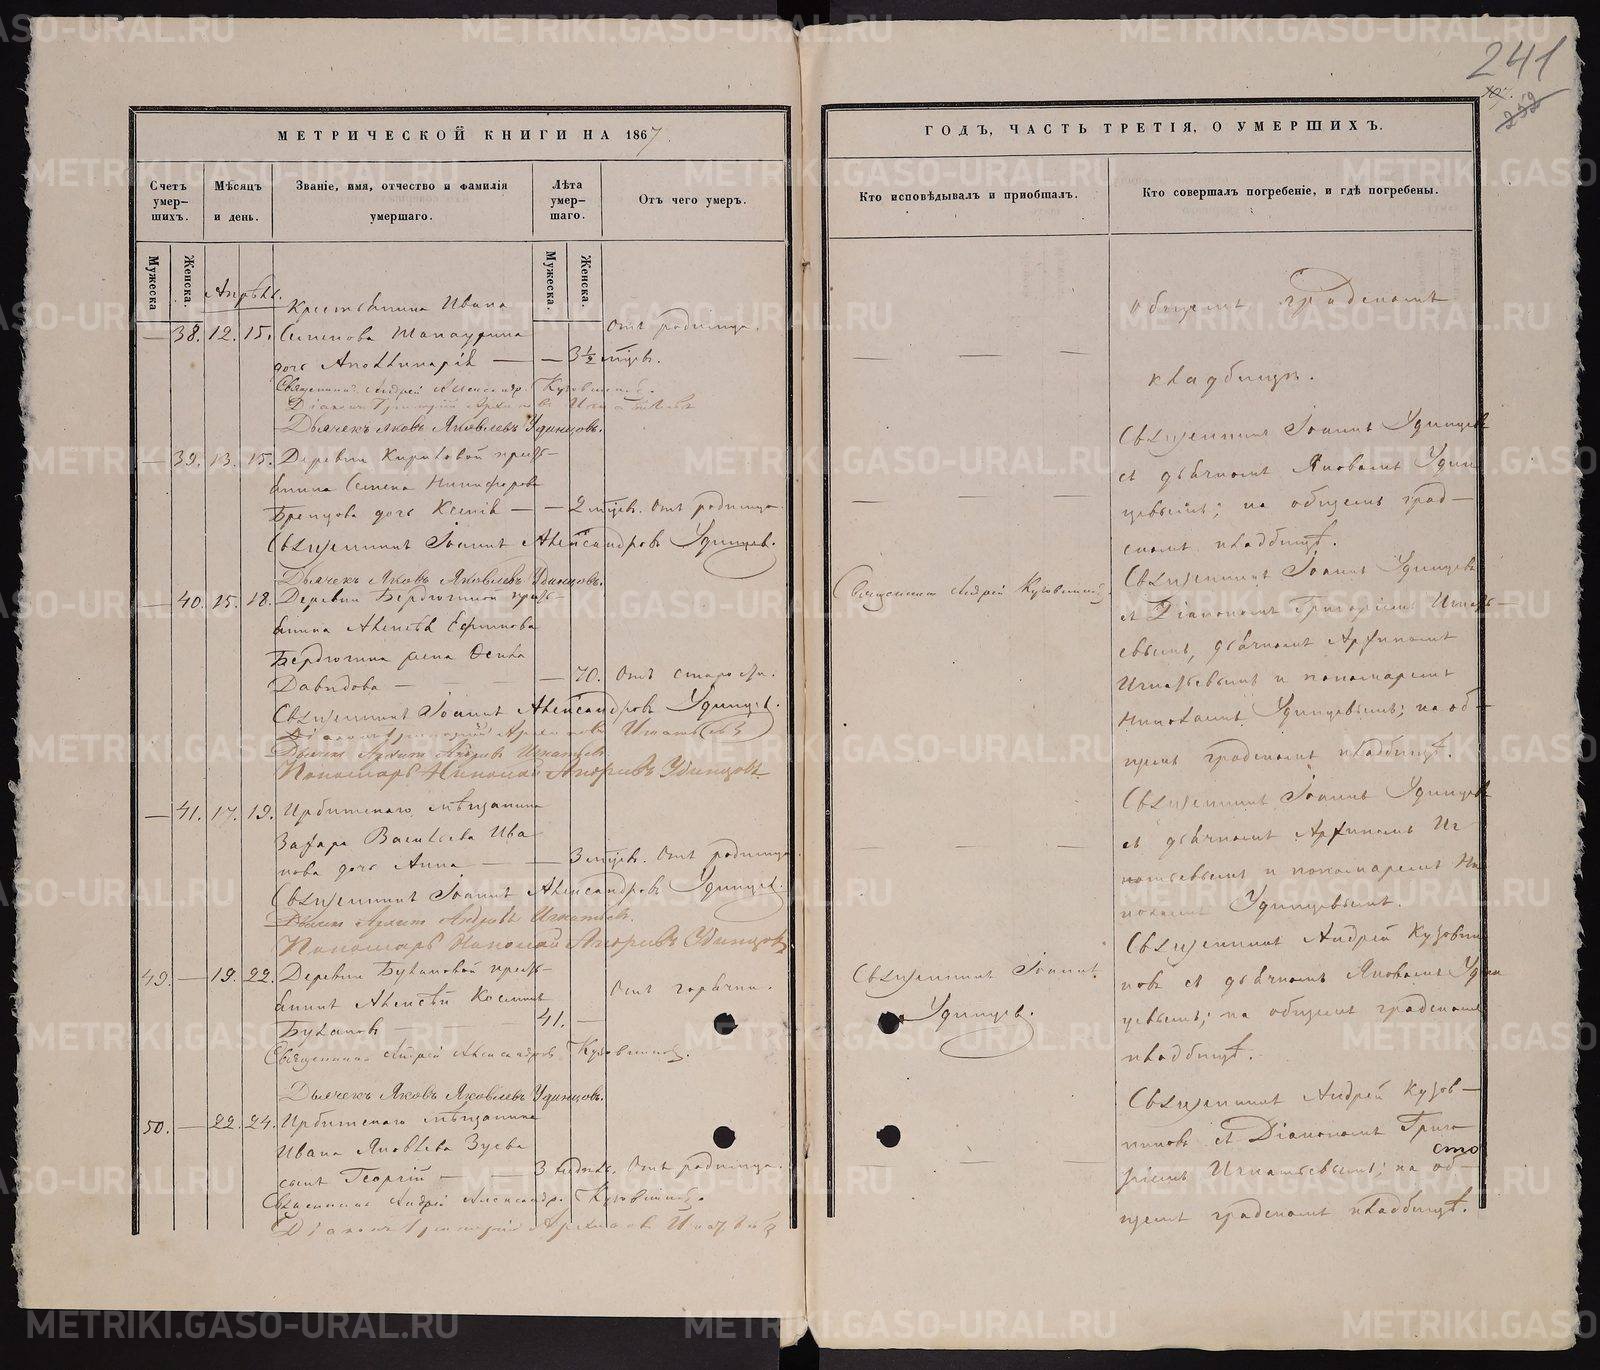 241
МЕТРИЧЕСКОЙ КНИГИ НА 1867
ГОДЪ, ЧАСТЬ ТРЕТІЯ, О УМЕРШИХЪ.
Счетъ умер-шихъ.
Мѣсяцъ и день.
Званіе, имя, отчество и фамилія умершаго.
Лѣта умер-шаго.
Отъ чего умеръ.
Кто исповѣдывалъ и пріобщалъ.
Кто совершалъ погребеніе, и гдѣ погребены.
Мужеска.
Женска.
Мужеска.
Женска.
Апрѣль.
Крестьянина Ивана
— 38. 12. 15. Семенова
дочь Апollинарія — — 3½ мѣсяц.
Отъ родимца.
Священникъ Андрей Александр. Кузовниковъ.
Діаконъ Григорій Архиповъ Игнатьевъ
Дьячекъ Яковъ Яковлевъ Удинцовъ.
общемъ градскомъ
кладбищѣ.
— 39. 13. 15. Деревни Кириловой кресть-
янина Семена Никифорова
дочь Ксенія — — 2 мѣсяц. Отъ родимца.
Священникъ Іоаннъ Александровъ Удинцев.
Дьячекъ Яковъ Яковлевъ Удинцовъ.
Священникъ Іоаннъ Удинцевъ
съ дьячкомъ Яковомъ Удин
цевымъ; на общемъ град—
скомъ кладбищѣ.
— 40. 15. 18. Деревни Бердюгиной кресть-
янина Алексѣя Ефимова
Бердюгина жена Фекла
Давидова — — 70. Отъ старости.
Священникъ Іоаннъ Александровъ Удинцев.
Діаконъ Григорій Архиповъ Игнатьевъ
Дьячекъ Архипъ Андреевъ Игнатьевъ
Пономарь Николай Андреевъ Удинцовъ
Священникъ Андрей Кузовниковъ.
Священникъ Іоаннъ Удинцевъ
съ Діакономъ Григоріемъ Игнать—
евымъ, дьячкомъ Архипомъ
Игнатьевымъ и пономаремъ
Николаемъ Удинцевымъ; на об—
щемъ градскомъ кладбищѣ.
— 41. 17. 19. Ирбитскаго мѣщанина
Захара Васильева Ива
нова дочь Анна — — 3 мѣсяц. Отъ родимца.
Священникъ Іоаннъ Александровъ Удинцев.
Дьячекъ Архипъ Андреевъ Игнатьевъ.
Пономарь Николай Андреевъ Удинцовъ.
Священникъ Іоаннъ Удинцевъ
съ дьячкомъ Архипомъ Иг
натьевымъ и пономаремъ Ни
колаемъ Удинцевымъ.
49. — 19. 22. Деревни Булановой кресть-
янинъ Алексѣй Козминъ
Булановъ — 41. —
Отъ горячки.
Священникъ Андрей Александровъ Кузовниковъ.
Дьячекъ Яковъ Яковлевъ Удинцовъ.
Священникъ Іоаннъ
Удинцев.
Священникъ Андрей Кузовни
ковъ съ дьячкомъ Яковомъ Удин
цевымъ; на общемъ градскомъ
кладбищѣ.
50. — 22. 24. Ирбитскаго мѣщанина
Ивана Яковлева Зуева
сынъ Георгій — 3 недѣль. Отъ родимца.
Священникъ Андрей Александр. Кузовниковъ.
Діаконъ Григорій Архиповъ Игнатьевъ
Священникъ Андрей Кузов—
никовъ съ Діакономъ Григо
ріемъ Игнатьевымъ; на об—
щемъ градскомъ кладбищѣ.
METRIKI.GASO-URAL.RU